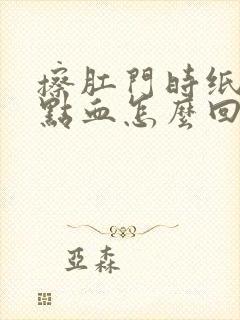 擦肛門時纸
點血怎麼回
亞森